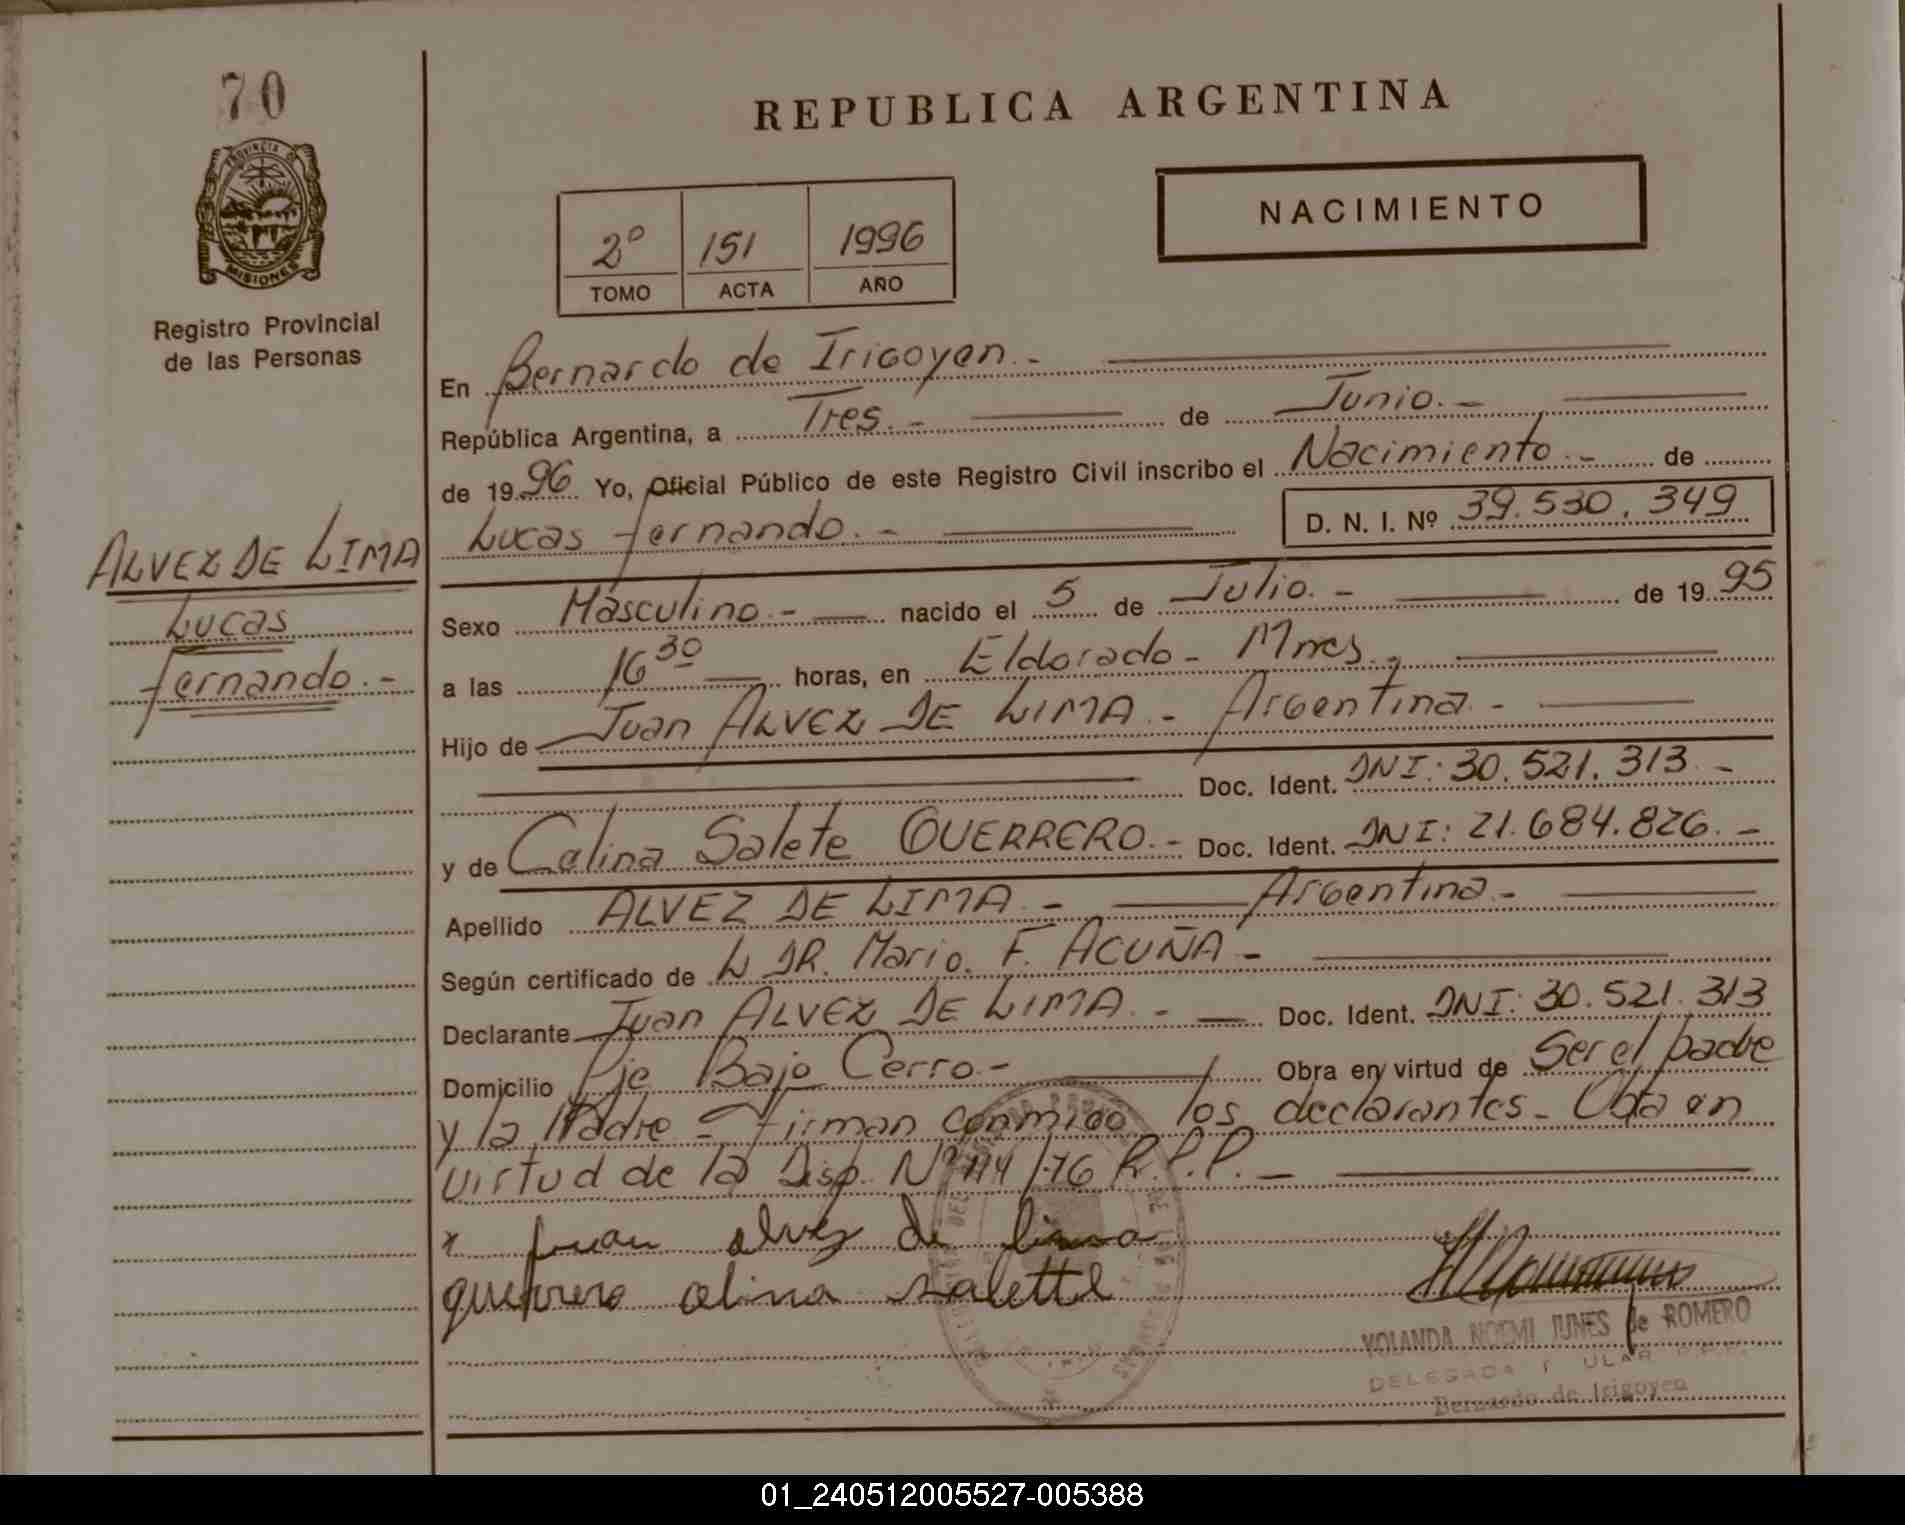 70
REPUBLICA ARGENTINA
PROVINCIA DE
MISIONES
Registro Provincial
de las Personas
2º 151 1996
TOMO ACTA AÑO
NACIMIENTO
En Bernardo de Irigoyen.-
República Argentina, a Tres.- de Junio.-
de 1996 Yo, Oficial Público de este Registro Civil inscribo el Nacimiento.- de
Lucas Fernando.- D. N. I. Nº 39.530.349
ALVEZ DE LIMA
Lucas
Fernando.-
Sexo Masculino.- nacido el 5 de Julio.- de 1995
a las 16 30 horas, en Eldorado - Mnes.,
Hijo de Juan ALVEZ DE LIMA.- Argentina.-
Doc. Ident. DNI: 30.521.313.-
y de Celina Salete GUERRERO.- Doc. Ident. DNI: 21.684.826.-
Apellido ALVEZ DE LIMA.- Argentina.-
Según certificado de L DR. Mario. F. ACUÑA-
Declarante Juan ALVEZ DE LIMA.- Doc. Ident. DNI: 30.521.313
Domicilio Pje Bajo Cerro.- Obra en virtud de Ser el padre
y la Madre - Firman conmigo los declarantes - Obra en
virtud de la Disp. Nº 114/76 R.P.P.-
x juan alvez de lima
guerrero alina salette
YOLANDA NOEMI JUNES de ROMERO
DELEGADA
Bernardo de Irigoyen
01_240512005527-005388